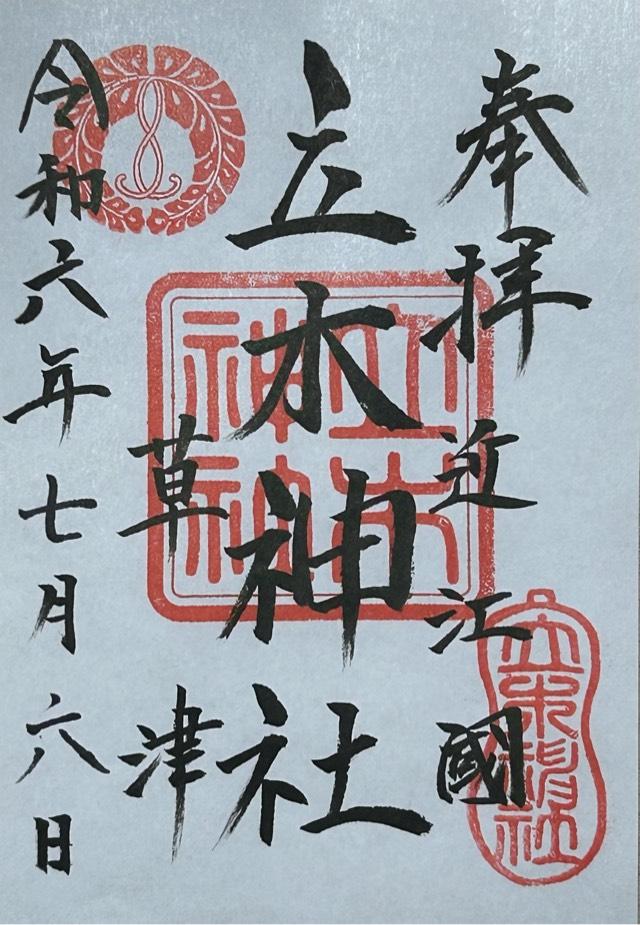 奉拝
近江國
立木神社
草津
令和六年七月六日
立木神社
立木神社